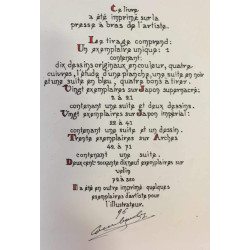 Ce livre
a été imprimé sur la
presse à bras de l'artiste.
Le tirage comprend:
Un exemplaire unique: 1
contenant:
dix dessins originaux en couleur, quatre
cuivres, l'étude d'une planche, une suite en noir
et une suite en bleu, quatre bons à tirer.
Vingt exemplaires sur Japon supernacré:
2 à 21
contenant une suite et deux dessins.
Vingt exemplaires sur Japon impérial:
22 à 41
contenant une suite et un dessin.
Trente exemplaires sur Arches
42 à 71
contenant une suite.
Deux cent soixante dix neuf exemplaires sur
vélin
72 à 350
Il a été en outre imprimé quelques
exemplaires d'artiste pour
l'illustrateur.